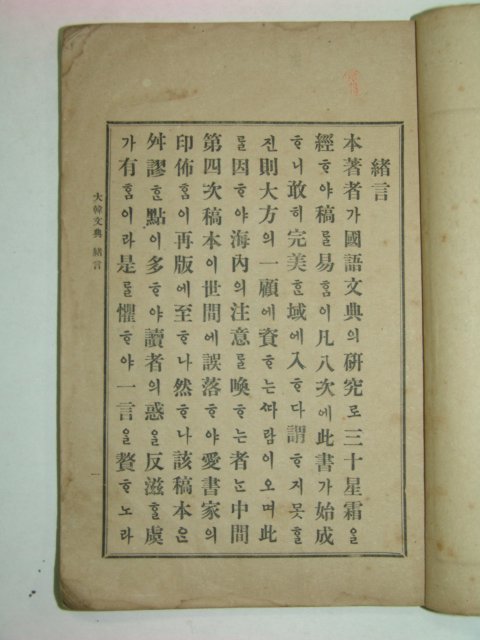 緖言
本著者가國語文典의硏究로三十星霜을
經ᄒᆞ야稿ᄅᆞᆯ易ᄒᆞᆷ이凡八次에此書가始成
ᄒᆞ니敢히完美ᄒᆞᆫ域에入ᄒᆞ다謂ᄒᆞ지못ᄒᆞᆯ
진則大方의一顧에資ᄒᆞ는ᄯᅡ람이오며此
ᄅᆞᆯ因ᄒᆞ야海內의注意ᄅᆞᆯ喚ᄒᆞ는者는中間
第四次稿本이世間에誤落ᄒᆞ야愛書家의
印佈ᄒᆞᆷ이再版에至ᄒᆞ나然ᄒᆞ나該稿本은
舛謬ᄒᆞᆫ點이多ᄒᆞ야讀者의惑을反滋ᄒᆞᆯ虞
가有ᄒᆞᆷ이라是ᄅᆞᆯ懼ᄒᆞ야一言을贅ᄒᆞ노라
大韓文典 緖言 一